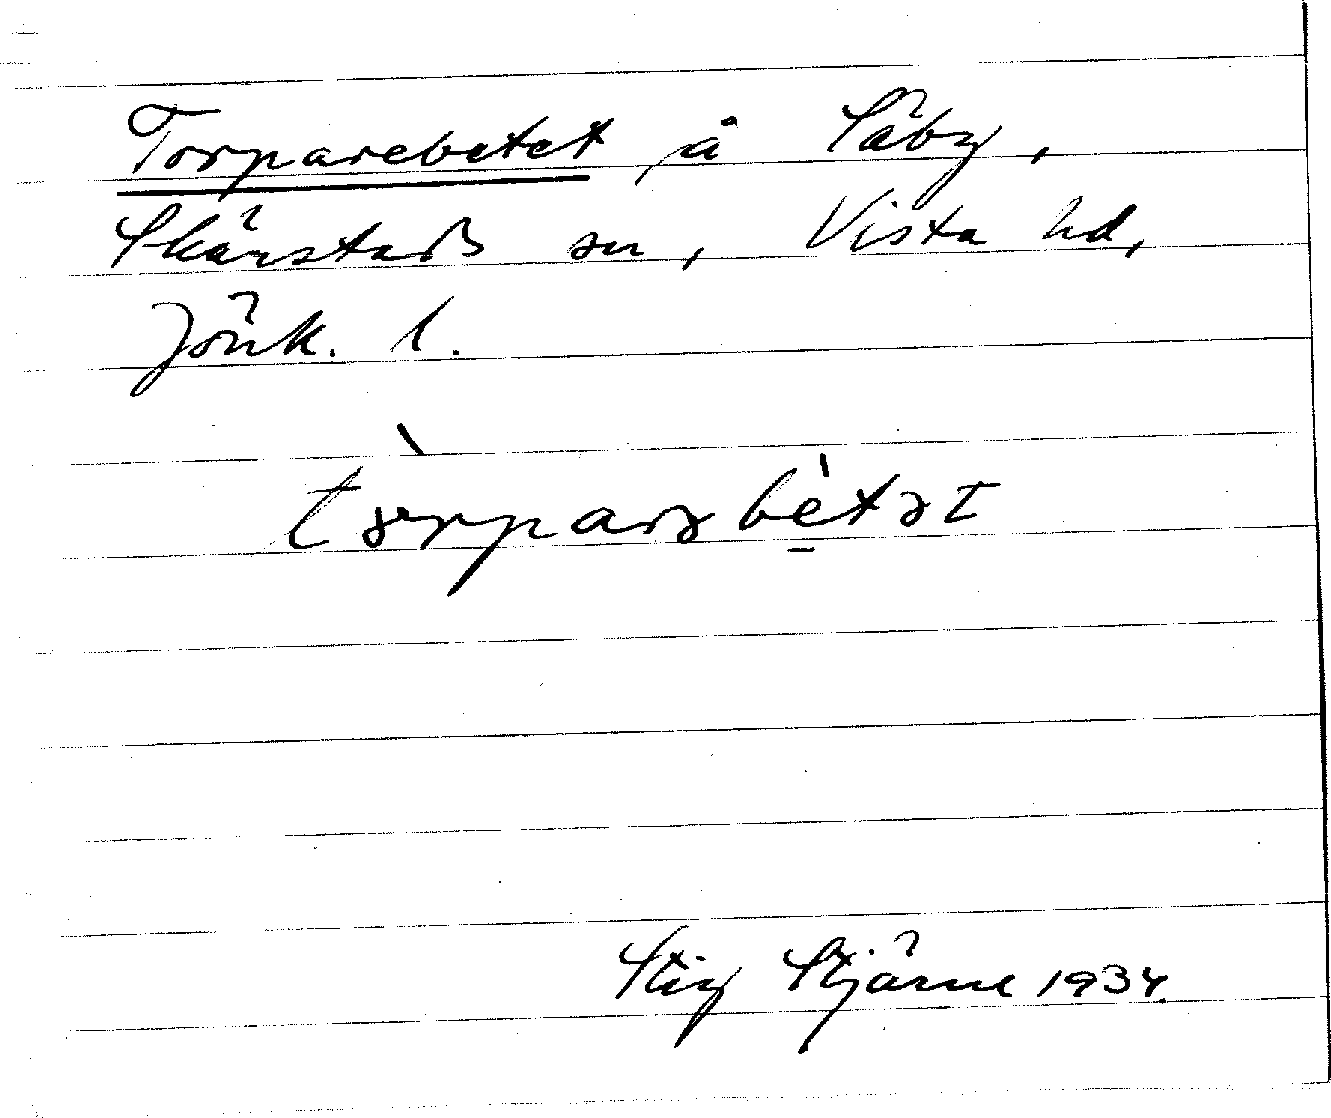 Torparebetet på Säby,
Skärstads sn, Vista hd,
Jönk. l.
tòrparəbètət
Stig Stjärne 1934.